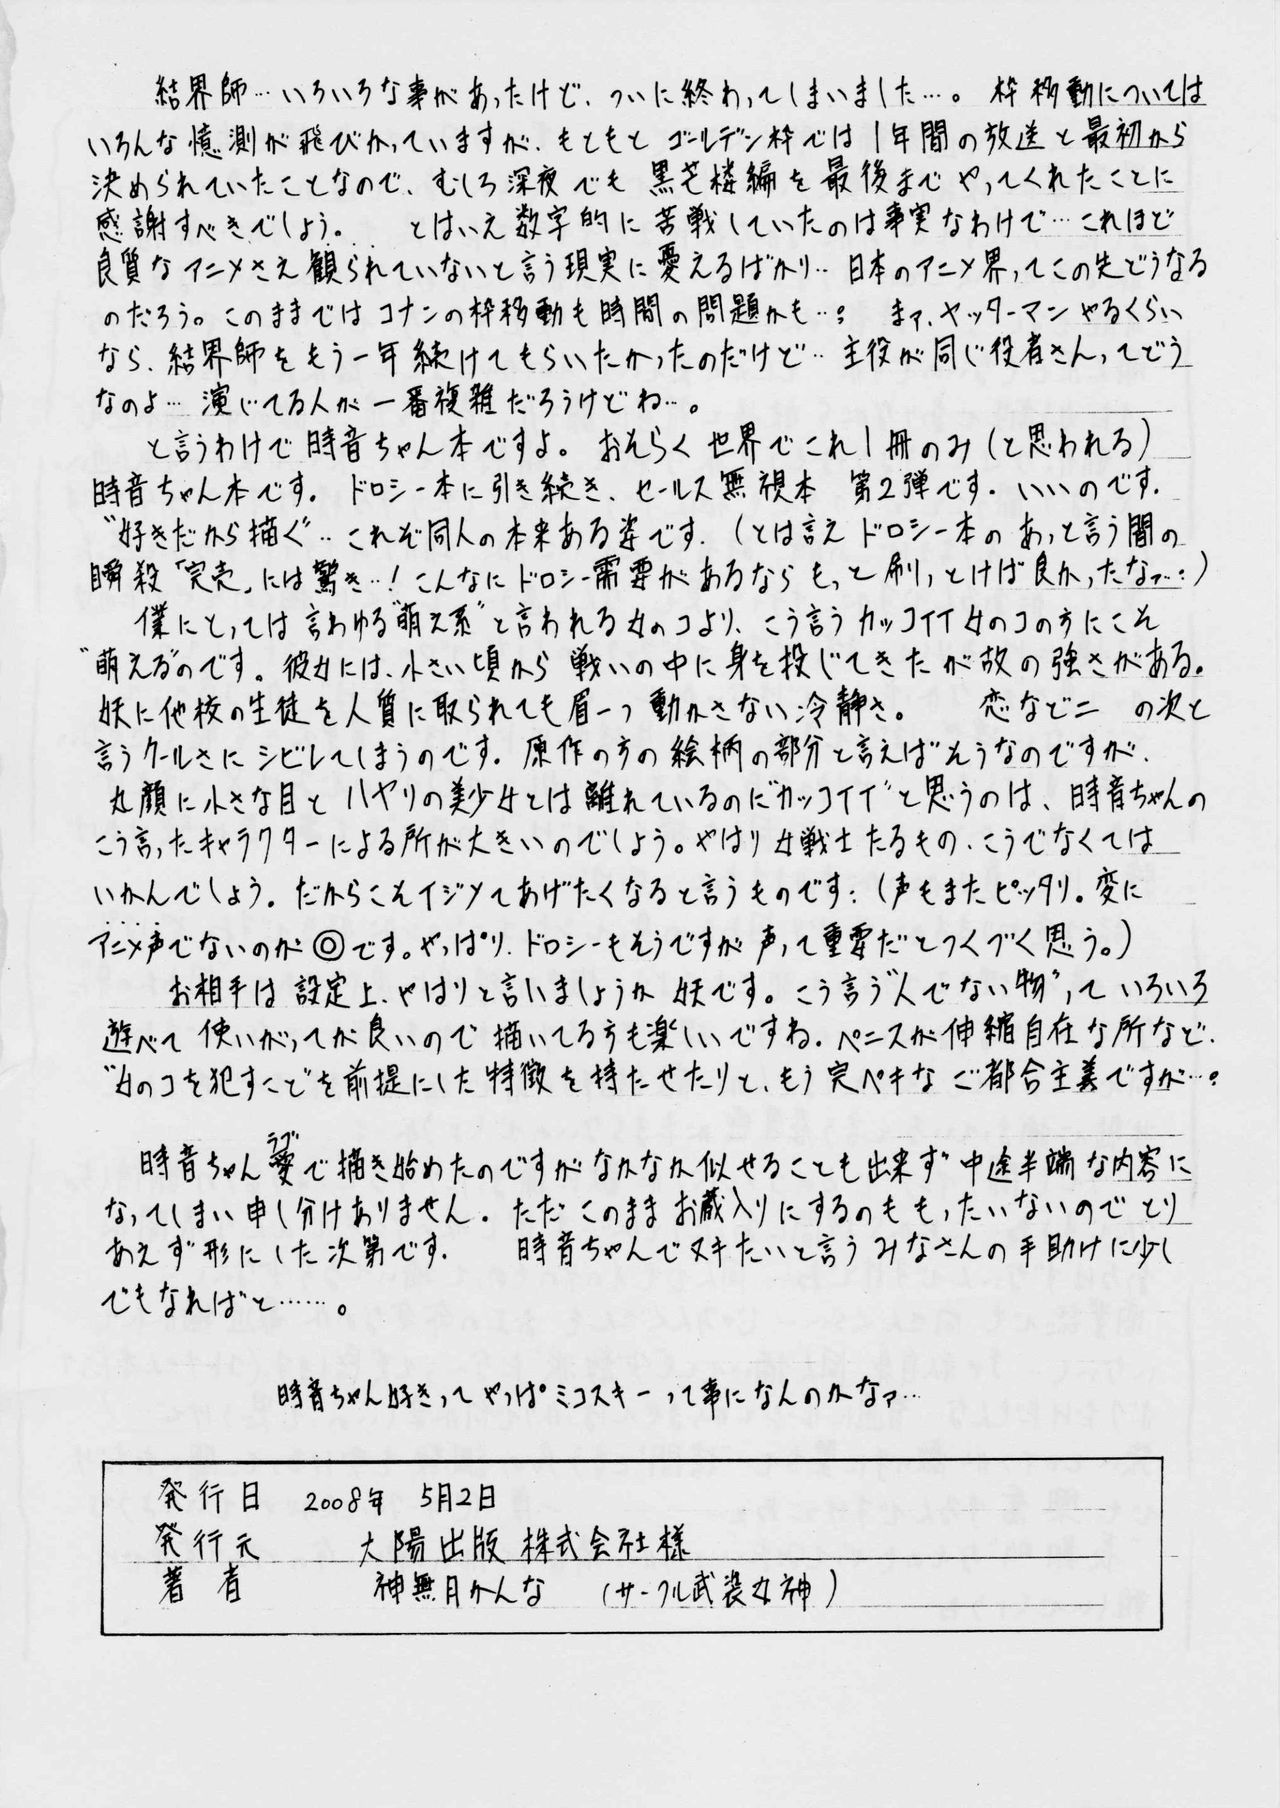 結界師…いろいろな事があったけど、ついに終わってしまいました…。枠移動については
いろんな憶測が飛びかっていますが、もともとゴールデン枠では1年間の放送と最初から
決められていたことなので、むしろ深夜でも黒芒楼編を最後までやってくれたことに
感謝すべきでしょう。　とはいえ数字的に苦戦していたのは事実なわけで…これほど
良質なアニメさえ観られていないと言う現実に憂えるばかり…日本のアニメ界ってこの先どうなる
のだろう。このままではコナンの枠移動も時間の問題かも…?　まァ、ヤッターマンやるくらい
なら、結界師をもう一年続けてもらいたかったのだけど…主役が同じ役者さんってどう
なのよ…演じてる人が一番複雑だろうけどね…。
と言うわけで時音ちゃん本ですよ。おそらく世界でこれ1冊のみ(と思われる)
時音ちゃん本です。ドロシー本に引き続き、セールス無視本　第2弾です。いいのです。
“好きだから描く”…これぞ同人の本来ある姿です。(とは言えドロシー本のあっと言う間の
瞬殺「完売」には驚き…!こんなにドロシー需要があるならもっと刷っとけば良かったなァ…:)
僕にとっては言わゆる“萌え系”と言われる女のコより、こう言うカッコイイ女のコの方にこそ
“萌える”のです。彼女には、小さい頃から戦いの中に身を投じてきたが故の強さがある。
妖に他校の生徒を人質に取られても眉一つ動かさない冷静さ。　恋など二　の次と
言うクールさにシビレてしまうのです。原作の方の絵柄の部分と言えばそうなのですが、
丸顔に小さな目とハヤリの美少女とは離れているのに“カッコイイ”と思うのは、時音ちゃんの
こう言ったキャラクターによる所が大きいのでしょう。やはり女戦士たるもの、こうでなくては
いかんでしょう。だからこそイジメてあげたくなると言うものです:(声もまたピッタリ。変に
アニメ声でないのが◎です。やっぱり、ドロシーもそうですが声って重要だとつくづく思う。)
お相手は設定上、やはりと言いましょうか妖です。こう言う“人でない物”っていろいろ
遊べて使いがってが良いので描いてる方も楽しいですね。ペニスが伸縮自在な所など、
“女のコを犯すこと”を前提にした特徴を持たせたりと、もう完ペキなご都合主義ですが…?
時音ちゃん愛(ラブ)で描き始めたのですがなかなか似せることも出来ず中途半端な内容に
なってしまい申し分けありません。ただこのままお蔵入りにするのももったいないのでとり
あえず形にした次第です。　時音ちゃんでヌキたいと言うみなさんの手助けに少し
でもなればと……。
時音ちゃん好きってやっぱミコスキーって事になんのかなァ…
発行日　2008年　5月2日
発行元　大陽出版株式会社様
著者　神無月かんな　(サークル武装女神)